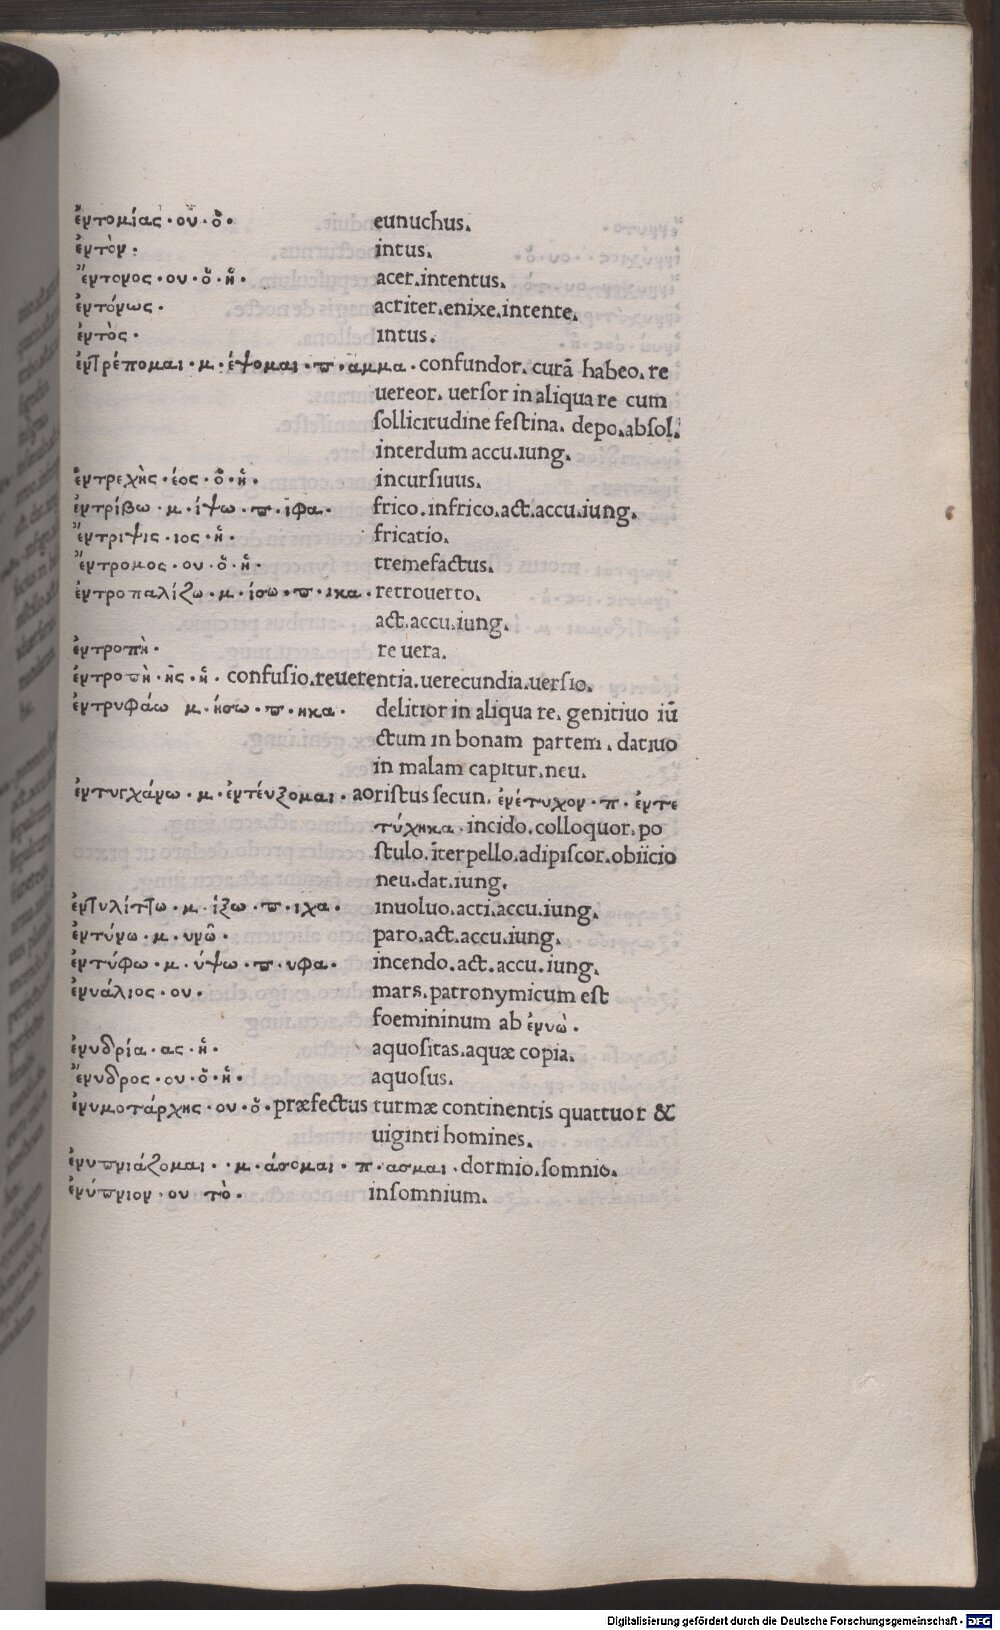 ἐντομίας·ου·ὁ· eunuchus.
ἐντὸν: intus.
ἔντονος·ου·ὁ·ἡ· acer.intentus.
ἐντόνως· acriter.enixe.intente.
ἐντὸς· intus.
ἐντρέπομαι·μ·έψομαι·π·αμμα·confundor.curā habeo.re
uereor.uersor in aliqua re cum
sollicitudine festina.depo.absol.
interdum accu.iung.
ἐντρεχὴς·έος·ὁ·ἡ· incursiuus.
ἐντρίβω·μ·ίψω·π·ιφα· frico.infrico.act.accu.iung.
ἔντριψις·ιος·ἡ· fricatio.
ἔντρομος·ου·ὁ·ἡ· tremefactus.
ἐντροπαλίζω·μ·ίσω·π·ικα·retrouerto.
act.accu.iung.
ἐντροπὴ· re uera.
ἐντροπὴ·ῆς·ἡ·confusio.reuerentia.uerecundia.uersio.
ἐντρυφάω μ·ήσω·π·ηκα· delitior in aliqua re.genitiuo iū
ctum in bonam partem.datiuo
in malam capitur.neu.
ἐντυγχάνω·μ·ἐντένξομαι·aoristus secun.ἐνέτυχον·π·ἐντε
τύχηκα·incido.colloquor.po
stulo.īterpello.adipiscor.obiicio
neu.dat.iung.
ἐντυλίττω·μ·ίξω·π·ιχα· inuoluo.acti.accu.iung.
ἐντύνω·μ·υνῶ· paro.act.accu.iung.
ἐντύφω·μ·ύψω·π·υφα· incendo.act.accu.iung.
ἐνυάλιος·ου· mars.patronymicum est
foemininum ab ἐνυὼ·
ἐνυδρία·ας·ἡ· aquositas.aquæ copia.
ἔνυδρος·ου·ὁ·ἡ· aquosus.
ἐνυμοτάρχης·ου·ὁ·præfectus turmæ continentis quattuor &
uiginti homines.
ἐνυπνιάζομαι··μ·άσομαι·π·ασμαι·dormio.somnio.
ἐνύπνιον·ου τὸ· insomnium.
Digitalisierung gefördert durch die Deutsche Forschungsgemeinschaft - DFG